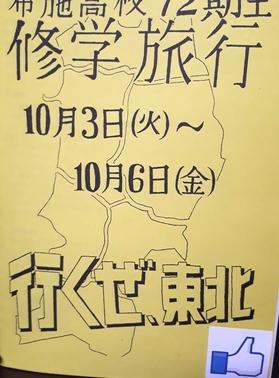 布施高校 72期生
修学旅行
10月3日(火)～
10月6日(金)
行くぜ、東北